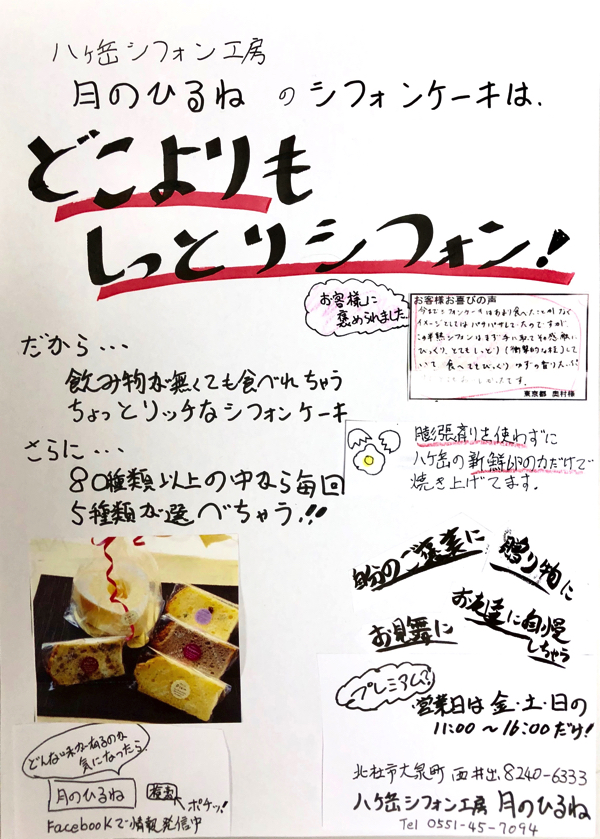 八ヶ岳シフォン工房
月のひるね のシフォンケーキは、
どこよりも
しっとりシフォン!
お客様に
褒められました。
お客様お喜びの声
今までシフォンケーキはあまり食べたことがなく
イメージとしてはパサパサしてたのですが
この半熟シフォンはまず手に取ってその感触に
びっくり、とてもしっとり(衝撃的な柱)して
いて 食べてもびっくり ゆずの香り
東京都 奥村様
だから・・・
飲み物が無くても食べれちゃう
ちょっとリッチなシフォンケーキ
さらに・・・
80種類以上の中から毎回
5種類が選べちゃう!!
膨張剤を使わずに
八ヶ岳の新鮮卵の力だけで
焼き上げてます。
自分のご褒美に
贈り物に
お見舞に
お友達に自慢
しちゃう
プレミアムな
営業日は金・土・日の
11:00〜16:00だけ!
どんな味があるのか
気になったら
月のひるね 検索 ポチッ!
Facebookで情報発信中
北杜市大泉町西井出8240-6333
八ヶ岳シフォン工房 月のひるね
Tel 0551-45-7094